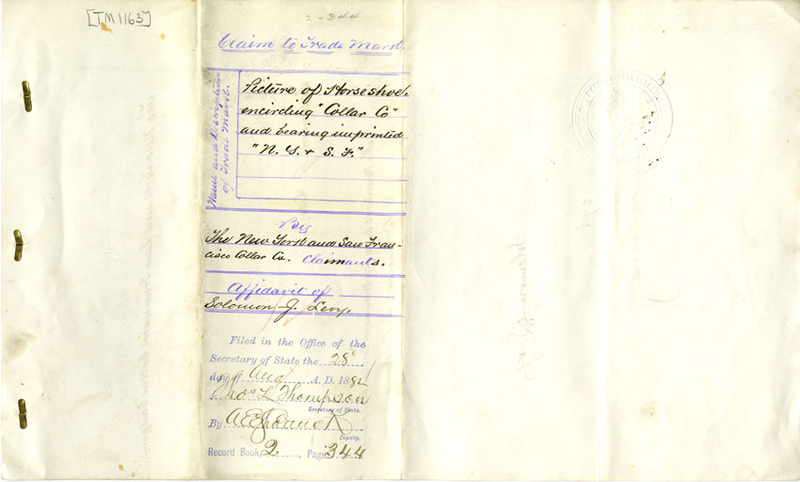 [TM1163]
2-344
Claim to Trade Mark.
Name and Description
of Trade Mark.
Picture of Horseshoe.
encircling "Collar Co"
and bearing imprinted
"N. Y. & S. F."
By
The New York and San Fran-
cisco Collar Co. Claimants.
Affidavit of
Solomon J. Levy.
Filed in the Office of the
Secretary of State the 28"
day of Aug A. D. 1882
Thos L. Thompson
Secretary of State.
By
Deputy.
Record Book, 2, Page 344